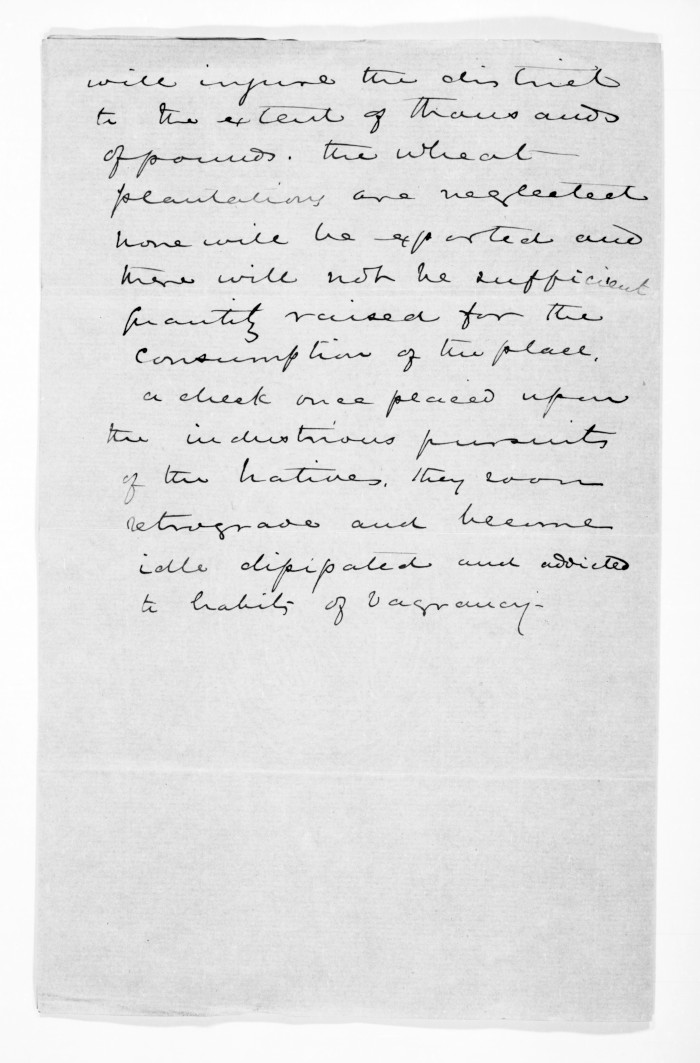 will injure the district
to the extent of thousands
of pounds. the wheat
plantations are neglected
none will be exported and
there will not be sufficient
quantity raised for the
consumption of the place.
a check once placed upon
the industrious pursuits
of the Natives, they soon
retrograve and become
idle dissipated and addicted
to habits of vagrancy-